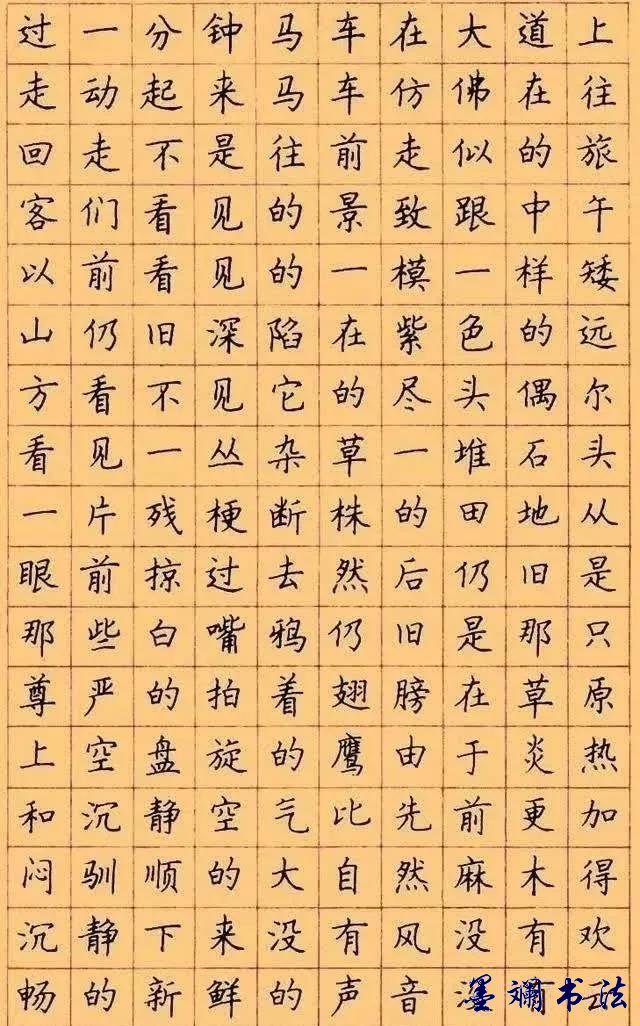 过一分钟马车在大道上
走动起来马车仿佛在往
回走不是往前走似的旅
客们看见的景致跟中午
以前看见的一模一样矮
山仍旧深陷在紫色的远
方看不见它的尽头偶尔
看见一丛杂草一堆石头
一片残梗断株的田地从
眼前掠过去然后仍旧是
那些白嘴鸦仍旧是那只
尊严的拍着翅膀在草原
上空盘旋的鹰由于炎热
和沉静空气比先前更加
闷驯顺的大自然麻木得
沉静下来没有风没有欢
畅的新鲜的声音
墨斓书法